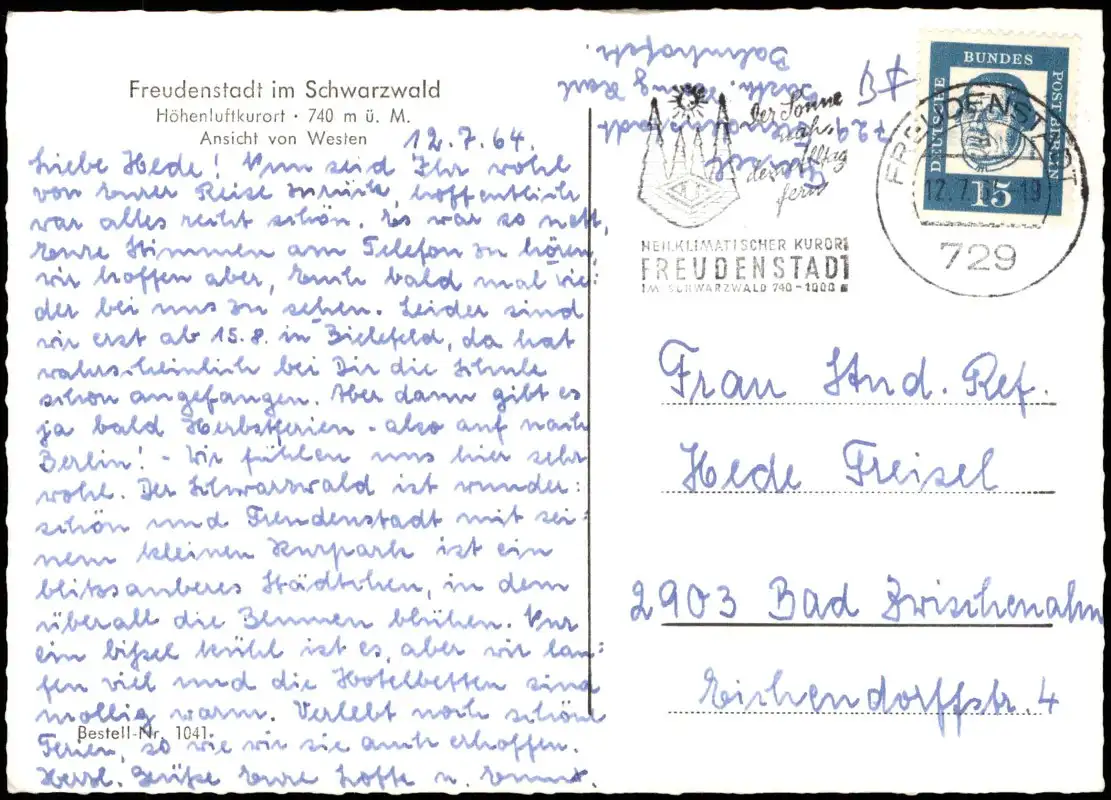 Freudenstadt im Schwarzwald
Höhenluftkurort · 740 m ü. M.
Ansicht von Westen
12.7.64.
Liebe Hede! Nun seid Ihr wohl
von Eurer Reise zurück, hoffentlich
war alles recht schön. Es war so nett,
Eure Stimmen am Telefon zu hören,
wir hoffen aber, Euch bald mal wie-
der bei uns zu sehen. Leider sind
wir erst ab 15.8. in Bielefeld, da hat
wahrscheinlich bei Dir die Schule
schon angefangen. Aber dann gibt es
ja bald Herbstferien - also auf nach
Berlin! - Wir fühlen uns hier sehr
wohl. Der Schwarzwald ist wunder=
schön und Freudenstadt mit sei=
nem kleinen Kurpark ist ein
blitzsauberes Städtchen, in dem
überall die Blumen blühen. Nur
ein bißel kühl ist es, aber wir lau=
fen viel und die Hotelbetten sind
mollig warm. Verlebt noch schöne
Ferien, so wie wir sie auch erhoffen.
Herzl. Grüße Eure Lotte u.
Bestell-Nr. 1041
729 Freudenstadt
Bahnhofstr.
der Sonne
nah,
dem Alltag
fern
HEILKLIMATISCHER KURORT
FREUDENSTADT
IM SCHWARZWALD 740-1000 m
DEUTSCHE BUNDESPOST BERLIN
15
FREUDENSTADT
12.7.64-19
729
Frau Stud. Ref.
Hede Freisel
2903 Bad Zwischenahn
Eichendorffstr. 4